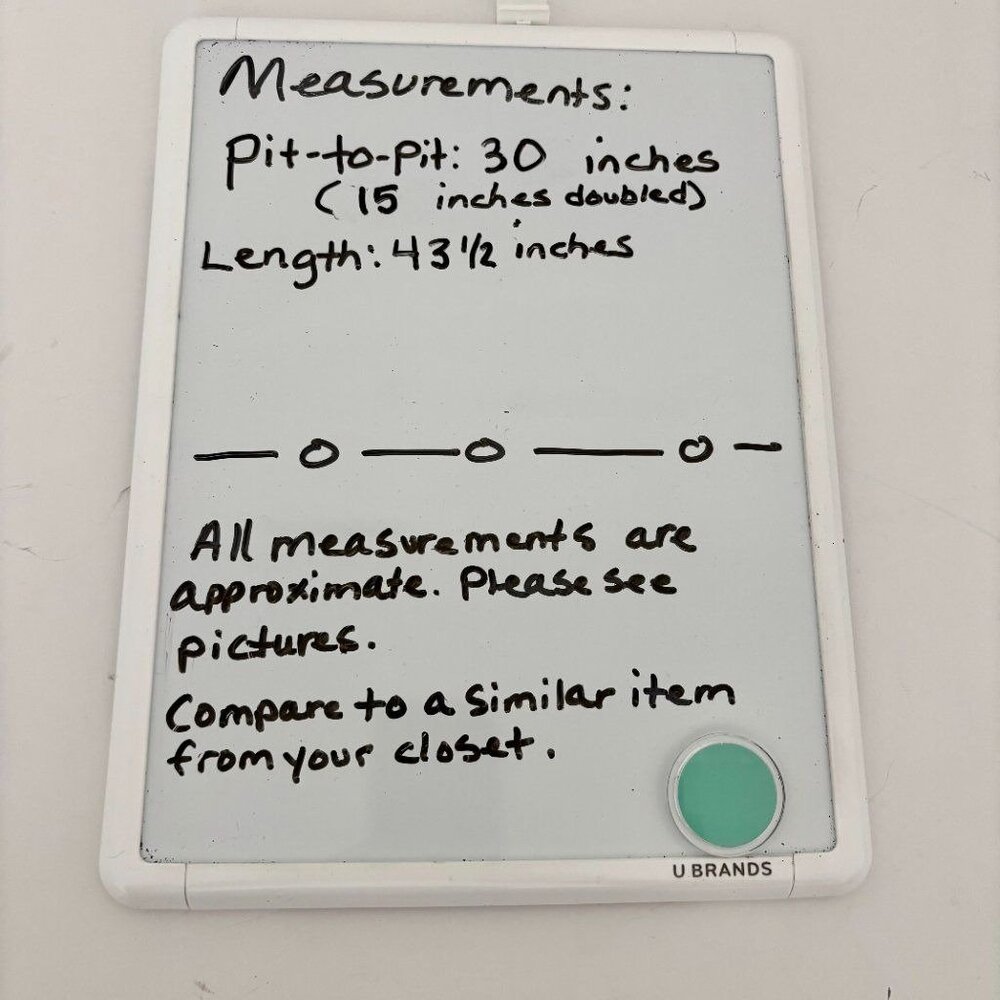 Measurements:
Pit-to-Pit: 30 inches
(15 inches doubled)
Length: 43 1/2 inches
— o — o — o —
All measurements are
approximate. Please see
pictures.
Compare to a similar item
from your closet.
U BRANDS